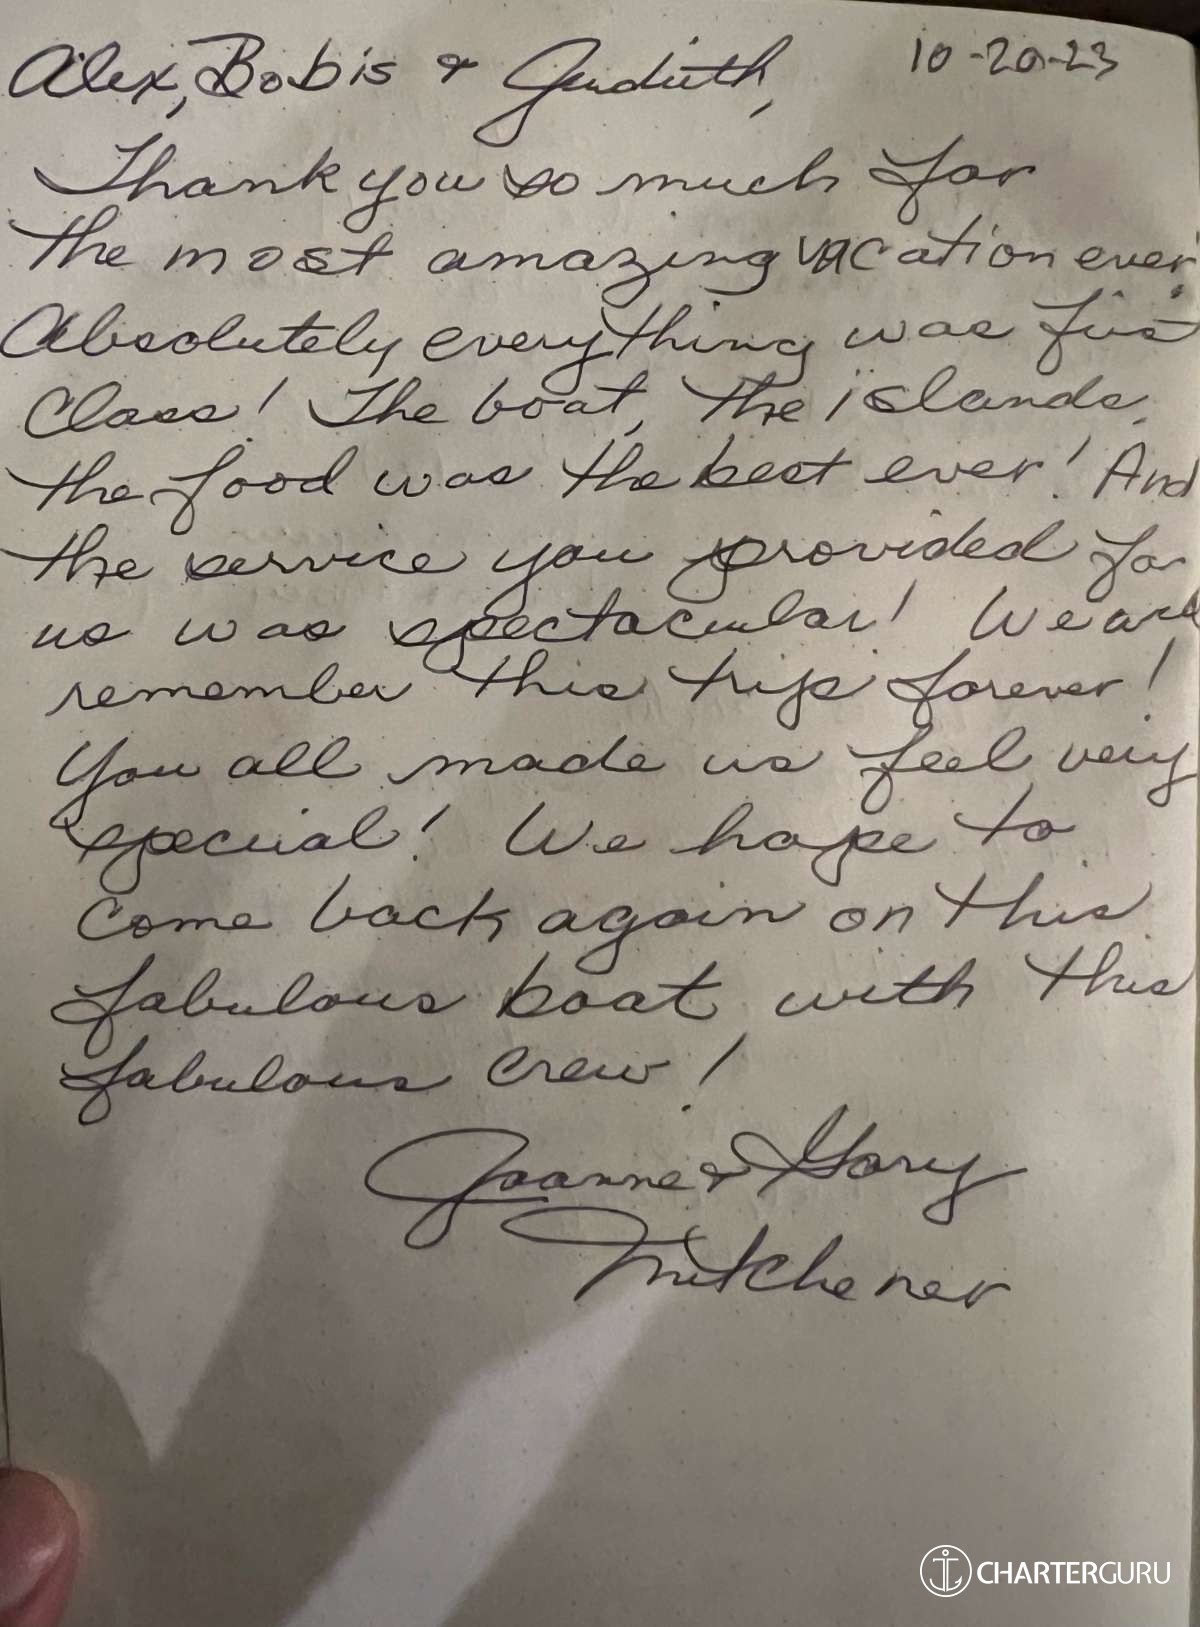 Alex, Bobis & Judith, 10-20-23
Thank you so much for
the most amazing vacation ever.
Absolutely everything was first
Class! The boat, the islands,
the food was the best ever! And
the service you provided for
us was spectacular! We will
remember this trip forever!
You all made us feel very
special! We hope to
come back again on this
fabulous boat with this
fabulous crew!
Joanne & Gary
Mitchener
CHARTERGURU